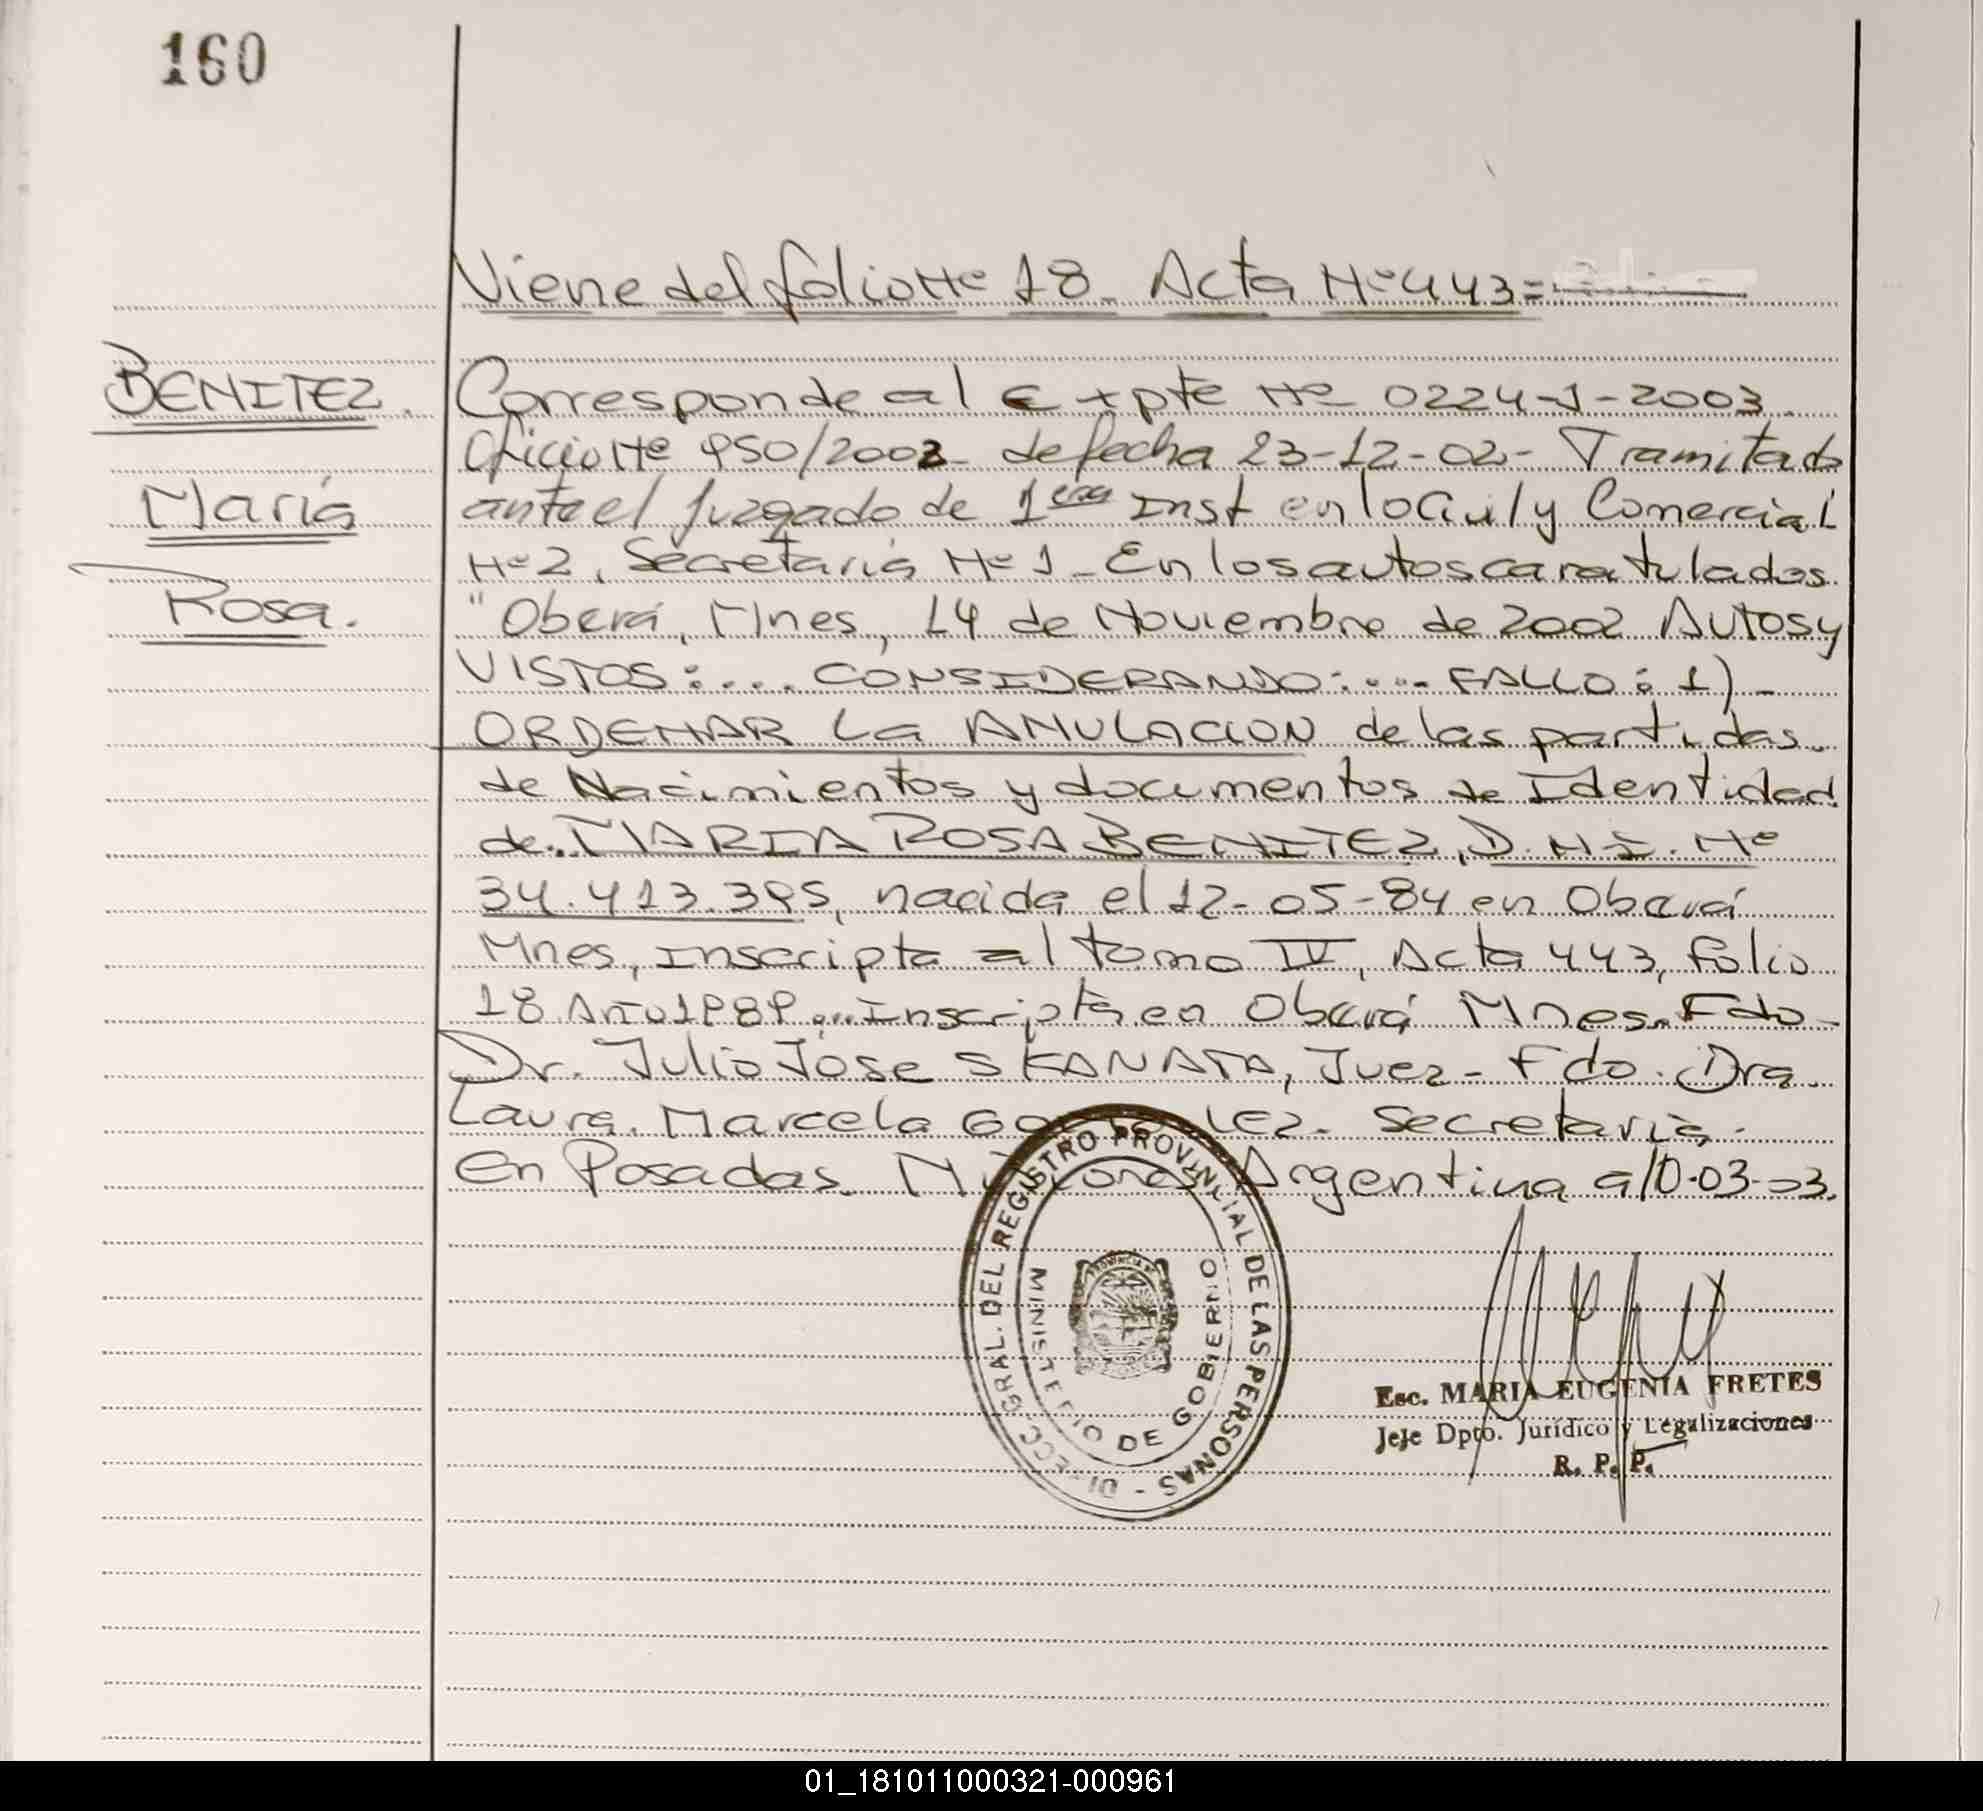 160
Viene del folio Nº 18. Acta Nº 443=
BENITEZ.
María
Rosa.
Corresponde al Expte Nº 0224-J-2003.
Oficio Nº 950/2002- de fecha 23-12-02- Tramitado
ante el Juzgado de 1era Inst en lo Civil y Comercial
Nº 2, Secretaría Nº 1- En los autos caratulados
"Oberá, Mnes, 14 de Noviembre de 2002 Autos y
VISTOS:... CONSIDERANDO:... FALLO: 1)-
ORDENAR La ANULACION de las partidas
de Nacimientos y documentos de Identidad
de MARIA ROSA BENITEZ, D.N.I. Nº
34.413.395, nacida el 12-05-84 en Oberá
Mnes, Inscripta al tomo IV, Acta 443, folio
18 Año 1989... Inscripta en Oberá Mnes. Fdo-
Dr. Julio José SKANATA, Juez- Fdo. Dra.
Laura Marcela Gonzalez. Secretaria.
En Posadas. Misiones Argentina a 10-03-03.
DIRECC. GRAL. DEL REGISTRO PROVINCIAL DE LAS PERSONAS -
MINISTERIO DE GOBIERNO
Esc. MARIA EUGENIA FRETES
Jefe Dpto. Jurídico y Legalizaciones
R. P. P.
01_181011000321-000961